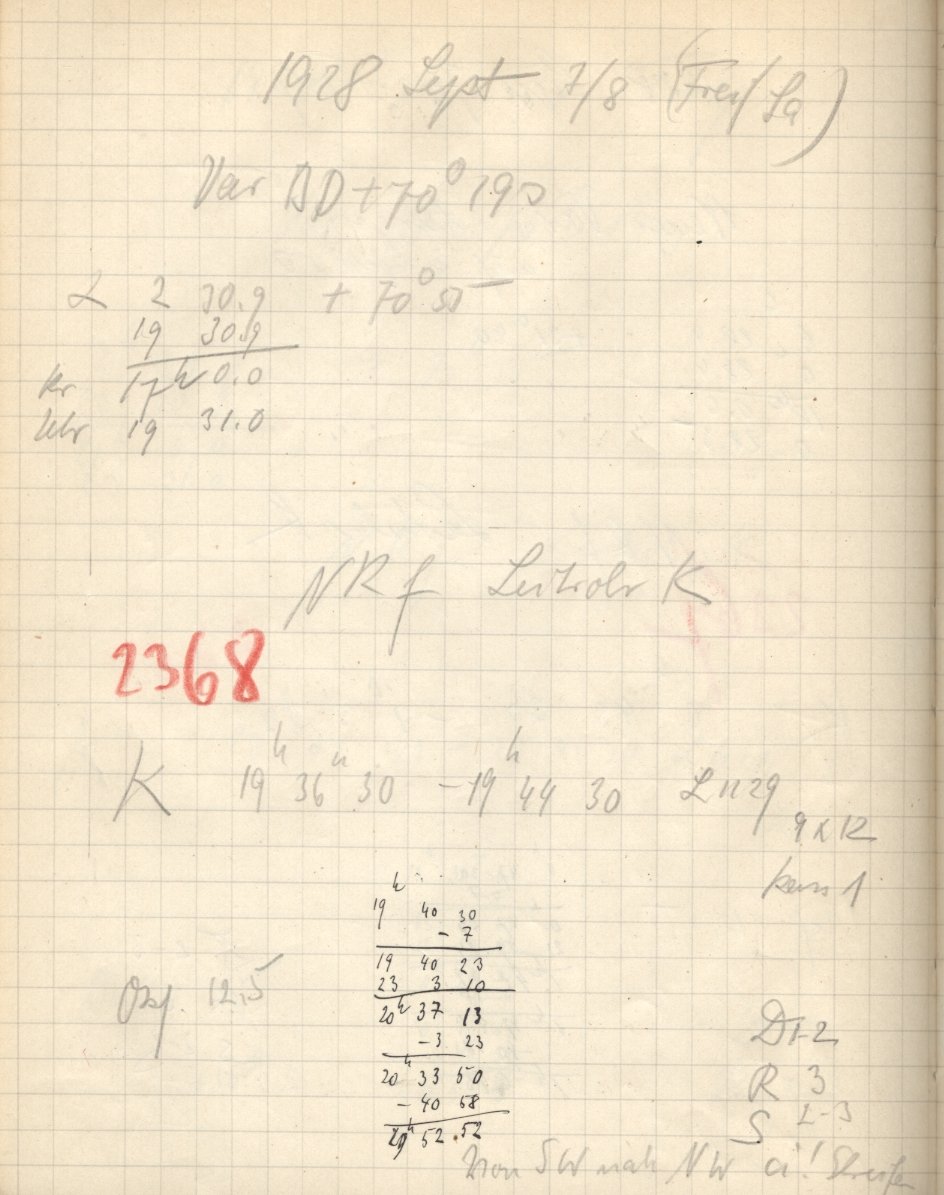 1928 Sept 7/8 (Frei/Sa)
Var BD +70° 195
α 2 30.9 + 70° 55
19 30.9
Kr 17h 0.0
Uhr 19 31.0
NRf Leitrohr K
2368
K 19h 36m 30 - 19h 44 30 Lu 29
9x12
Kass 1
19h 40 30
- 7
19 40 23
23 3 10
20h 37 13
- 3 23
20h 33 50
- 40 58
52 52
Obj. 12.5
D 1-2
R 3
S 2-3
von SW nach NW ci! Streifen